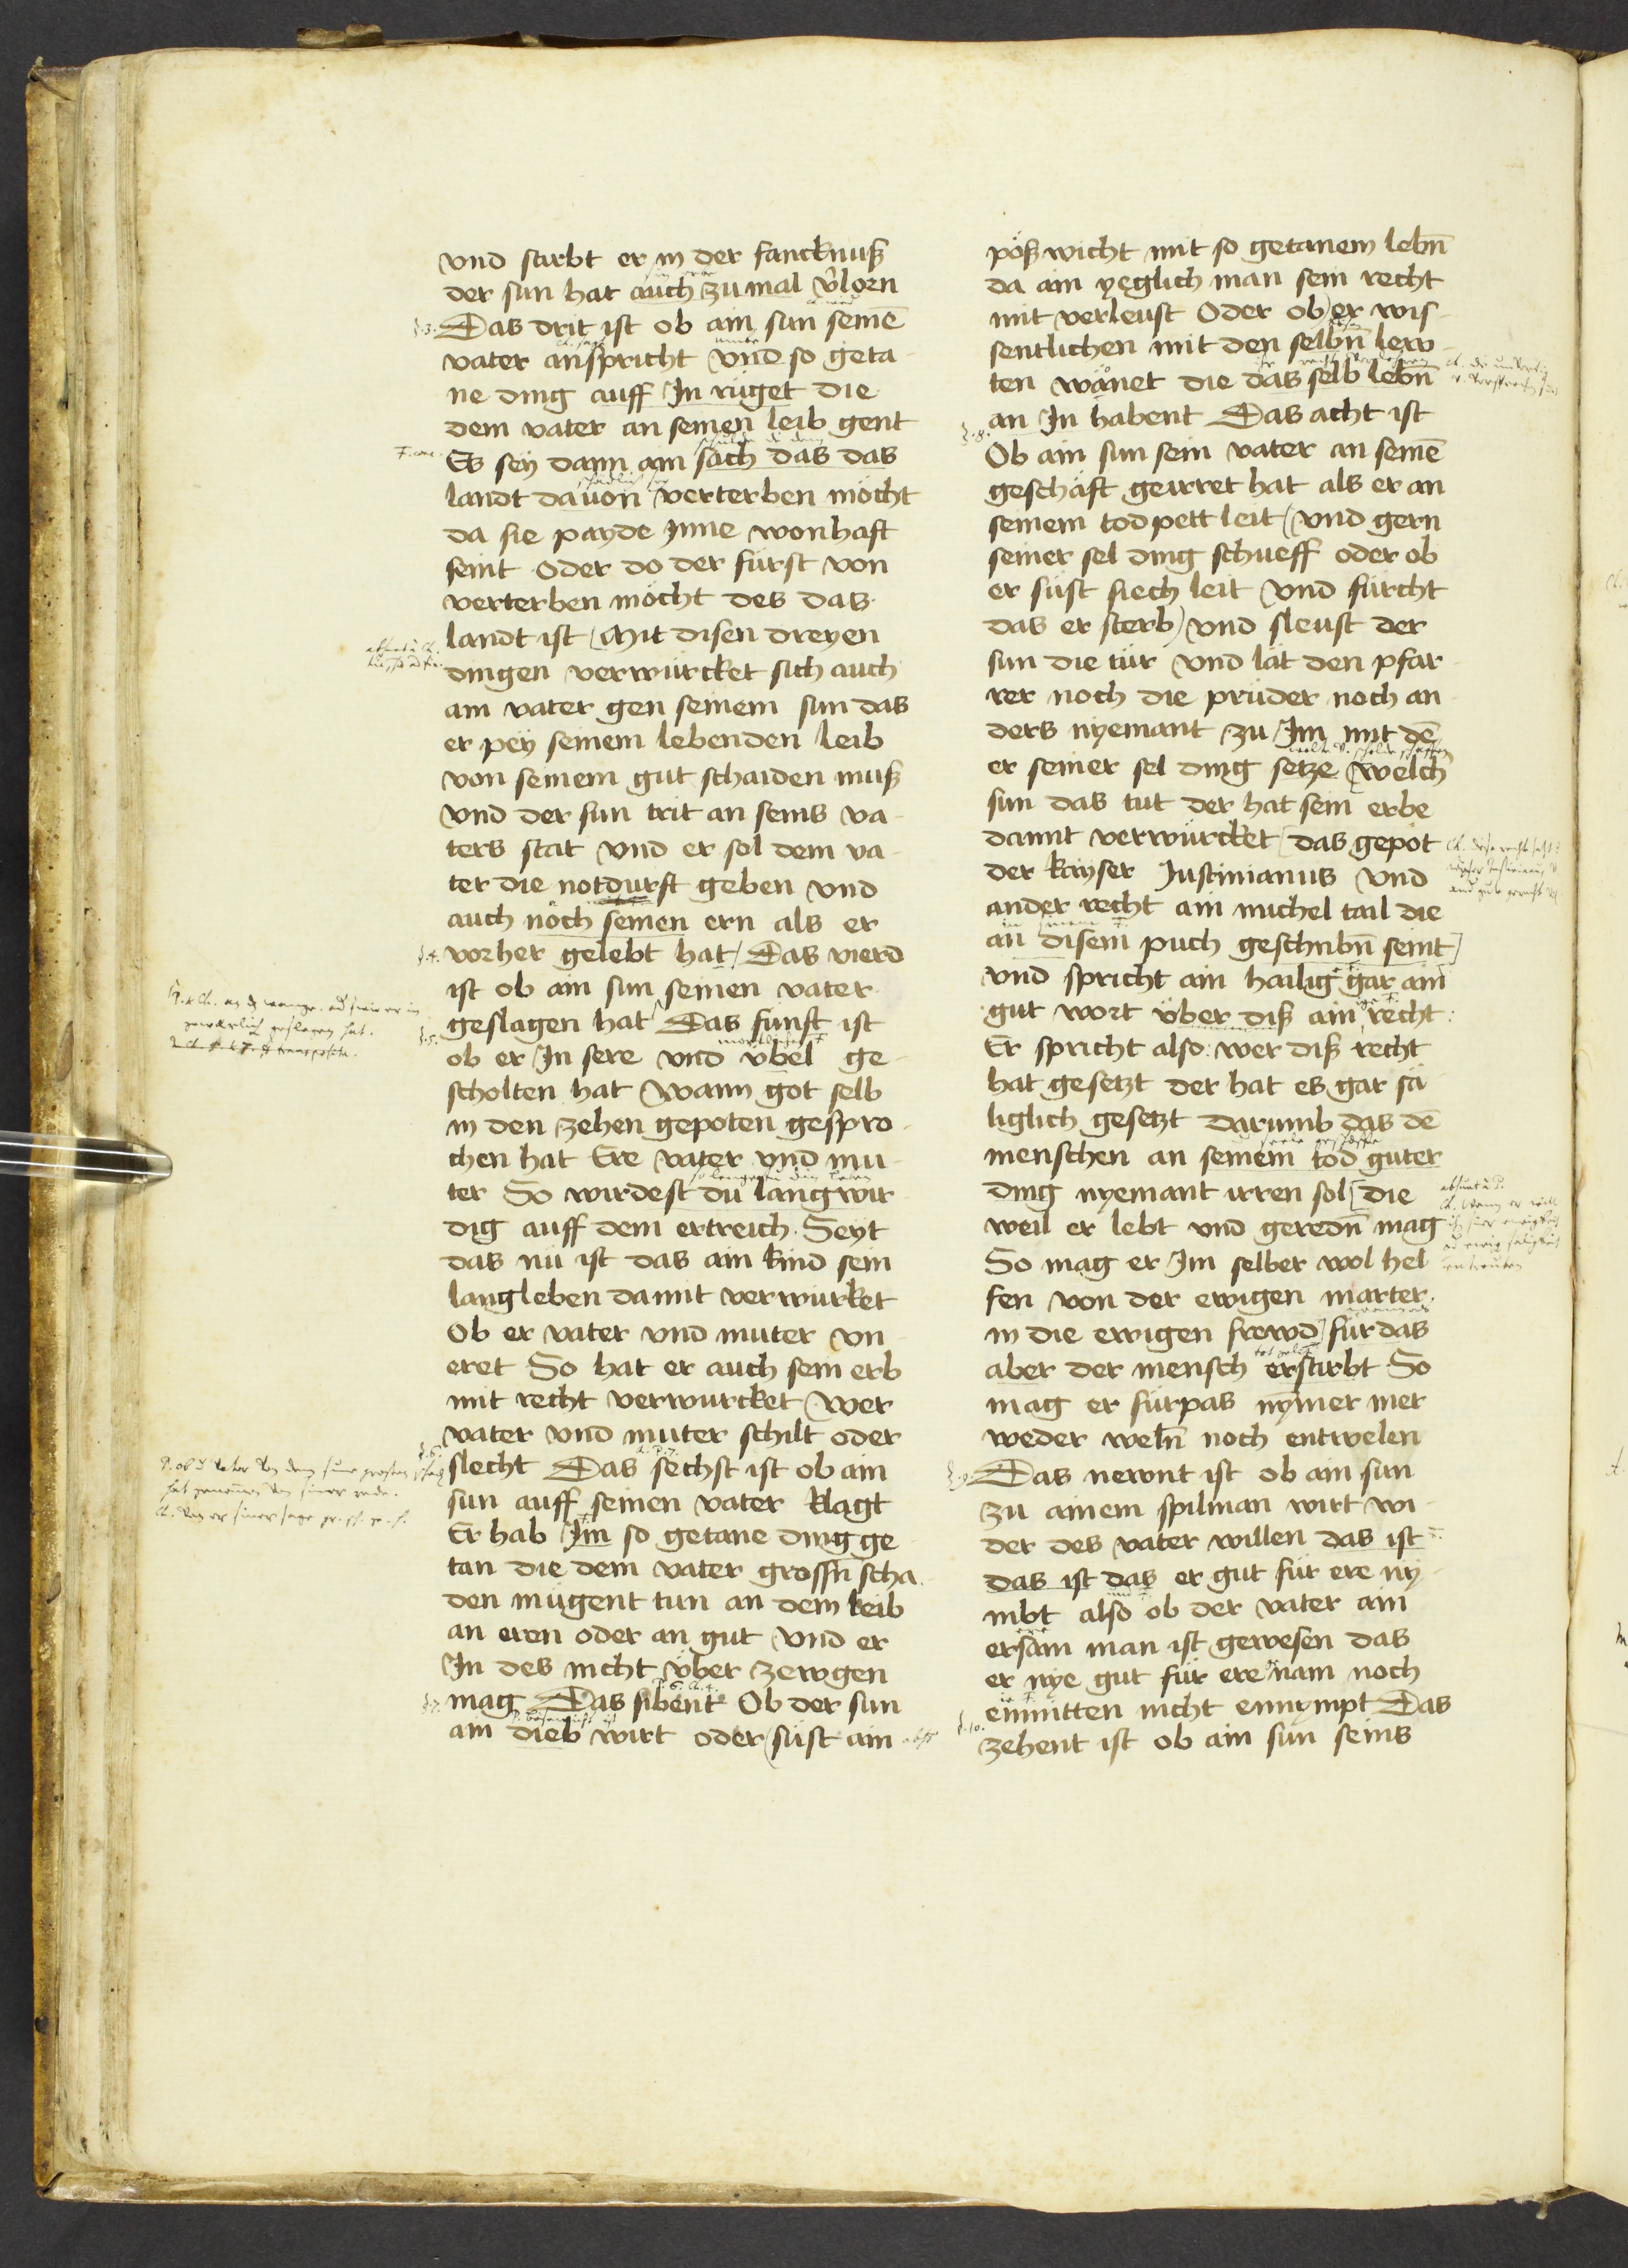 vnd stirbt er in der fancknuß
der sun hat auch zu mal v̉lorn
§.3. Das drit ist ob ain sun seinē
vater anspricht vnd so geta
ne ding auff In rüget die
dem vater an seinen leib gent
Es sey dann ain sach das das
landt dauon verterben möcht
da sie payde Inne wonhaft
seint oder do der fürst von
verterben möcht des das
landt ist Mit disen dreyen
dingen verwürcket sich auch
ain vater gen seinem sun das
er pey seinem lebenden leib
von seinem gut schaiden muß
vnd der sun trit an seins va
ters stat vnd er sol dem va
ter die notdurft geben vnd
auch noch seinen ern als er
§.4. vorher gelebt hat Das vierd
ist ob ain sun seinen vater
§.5. geslagen hat Das funft ist
ob er In sere vnd vbel ge
scholten hat Wann got selb
in den zehen gepoten gespro
chen hat Ere vater vnd mu
ter So wirdest du langwir
dig auff dem ertreich Seyt
das nu ist das ain kind sein
langleben damit verwürket
Ob er vater vnd muter vn
eret So hat er auch sein erb
mit recht verwurcket Wer
vater vnd muter schilt oder
§.6. slecht Das sechst ist ob ain
sun auff seinen vater klagt
Er hab Im so getane ding ge
tan die dem vater grossn̄ scha
den mügent tun an dem leib
an eren oder an gut vnd er
In des nicht vber zewgen
§.7. mag Das sibent Ob der sun
ain dieb wirt oder süst ain
pößwicht mit so getanem lebn̄
da ain yeglich man sein recht
mit verleust Oder ob er wis
sentlichen mit den selbn̄ lew
ten wänet die das selb lebn̄
§.8. an In habent Das acht ist
Ob ain sun sein vater an seinē
geschäft geirret hat als er an
seinem todpett leit vnd gern
seiner sel ding schueff oder ob
er süst siech leit vnd fürcht
das er sterb vnd sleust der
sun die tür vnd lät den pfar
rer noch die prüder noch an
ders nyemant zu Im mit dē
er seiner sel ding setze welch̉
sun das tut der hat sein erbe
damit verwürcket das gepot
der kayser Justinianus vnd
ander recht ain michel tail die
an disem puch geschribn̄ seint
vnd spricht ain hailig gar ain
gut wort über diß ain recht
Er spricht also wer diß recht
hat gesetzt der hat es gar sä
liglich gesetzt darumb das dē
menschen an seinem tod guter
ding nyemant irren sol die
weil er lebt vnd geredn̄ mag
So mag er Im selber wol hel
fen von der ewigen marter
in die ewigen frewd für das
aber der mensch erstirbt So
mag er fürpas nymer mer
weder weln̄ noch entwelen
§.9. Das newnt ist ob ain sun
zu ainem spilman wirt wi
der des vater willen das ist
das ist das er gut für ere ny
mbt also ob der vater ain
ersam man ist gewesen das
er nye gut für ere nam noch
enmitten nicht ennympt Das
§.10. zehent ist ob ain sun seins